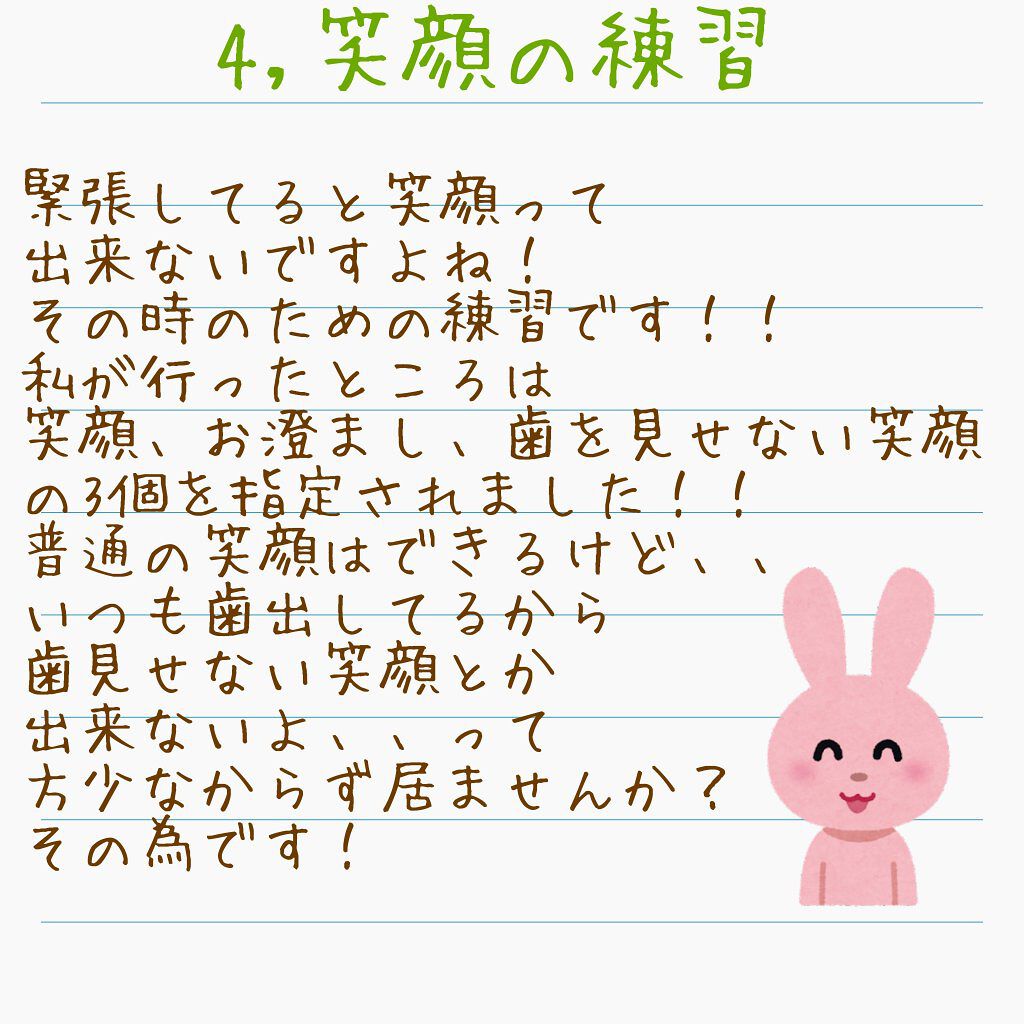 4,笑顔の練習
緊張してると笑顔って
出来ないですよね！
その時のための練習です！！
私が行ったところは
笑顔、お澄まし、歯を見せない笑顔
の3個を指定されました！！
普通の笑顔はできるけど、、
いつも歯出してるから
歯見せない笑顔とか
出来ないよ、、って
方少なからず居ませんか？
その為です！